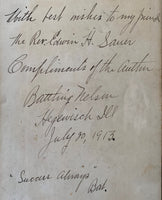 With best wishes to my friend
the Rev. Edwin H. Sauer
Compliments of the Author
Battling Nelson
Hegewisch Ill
July 30, 1913.
"Success Always"
Bat.